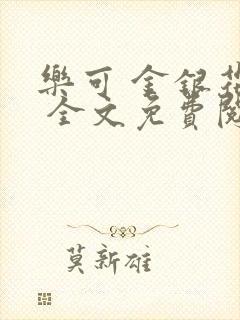 樂可 金銀
全文免費
莫新雄